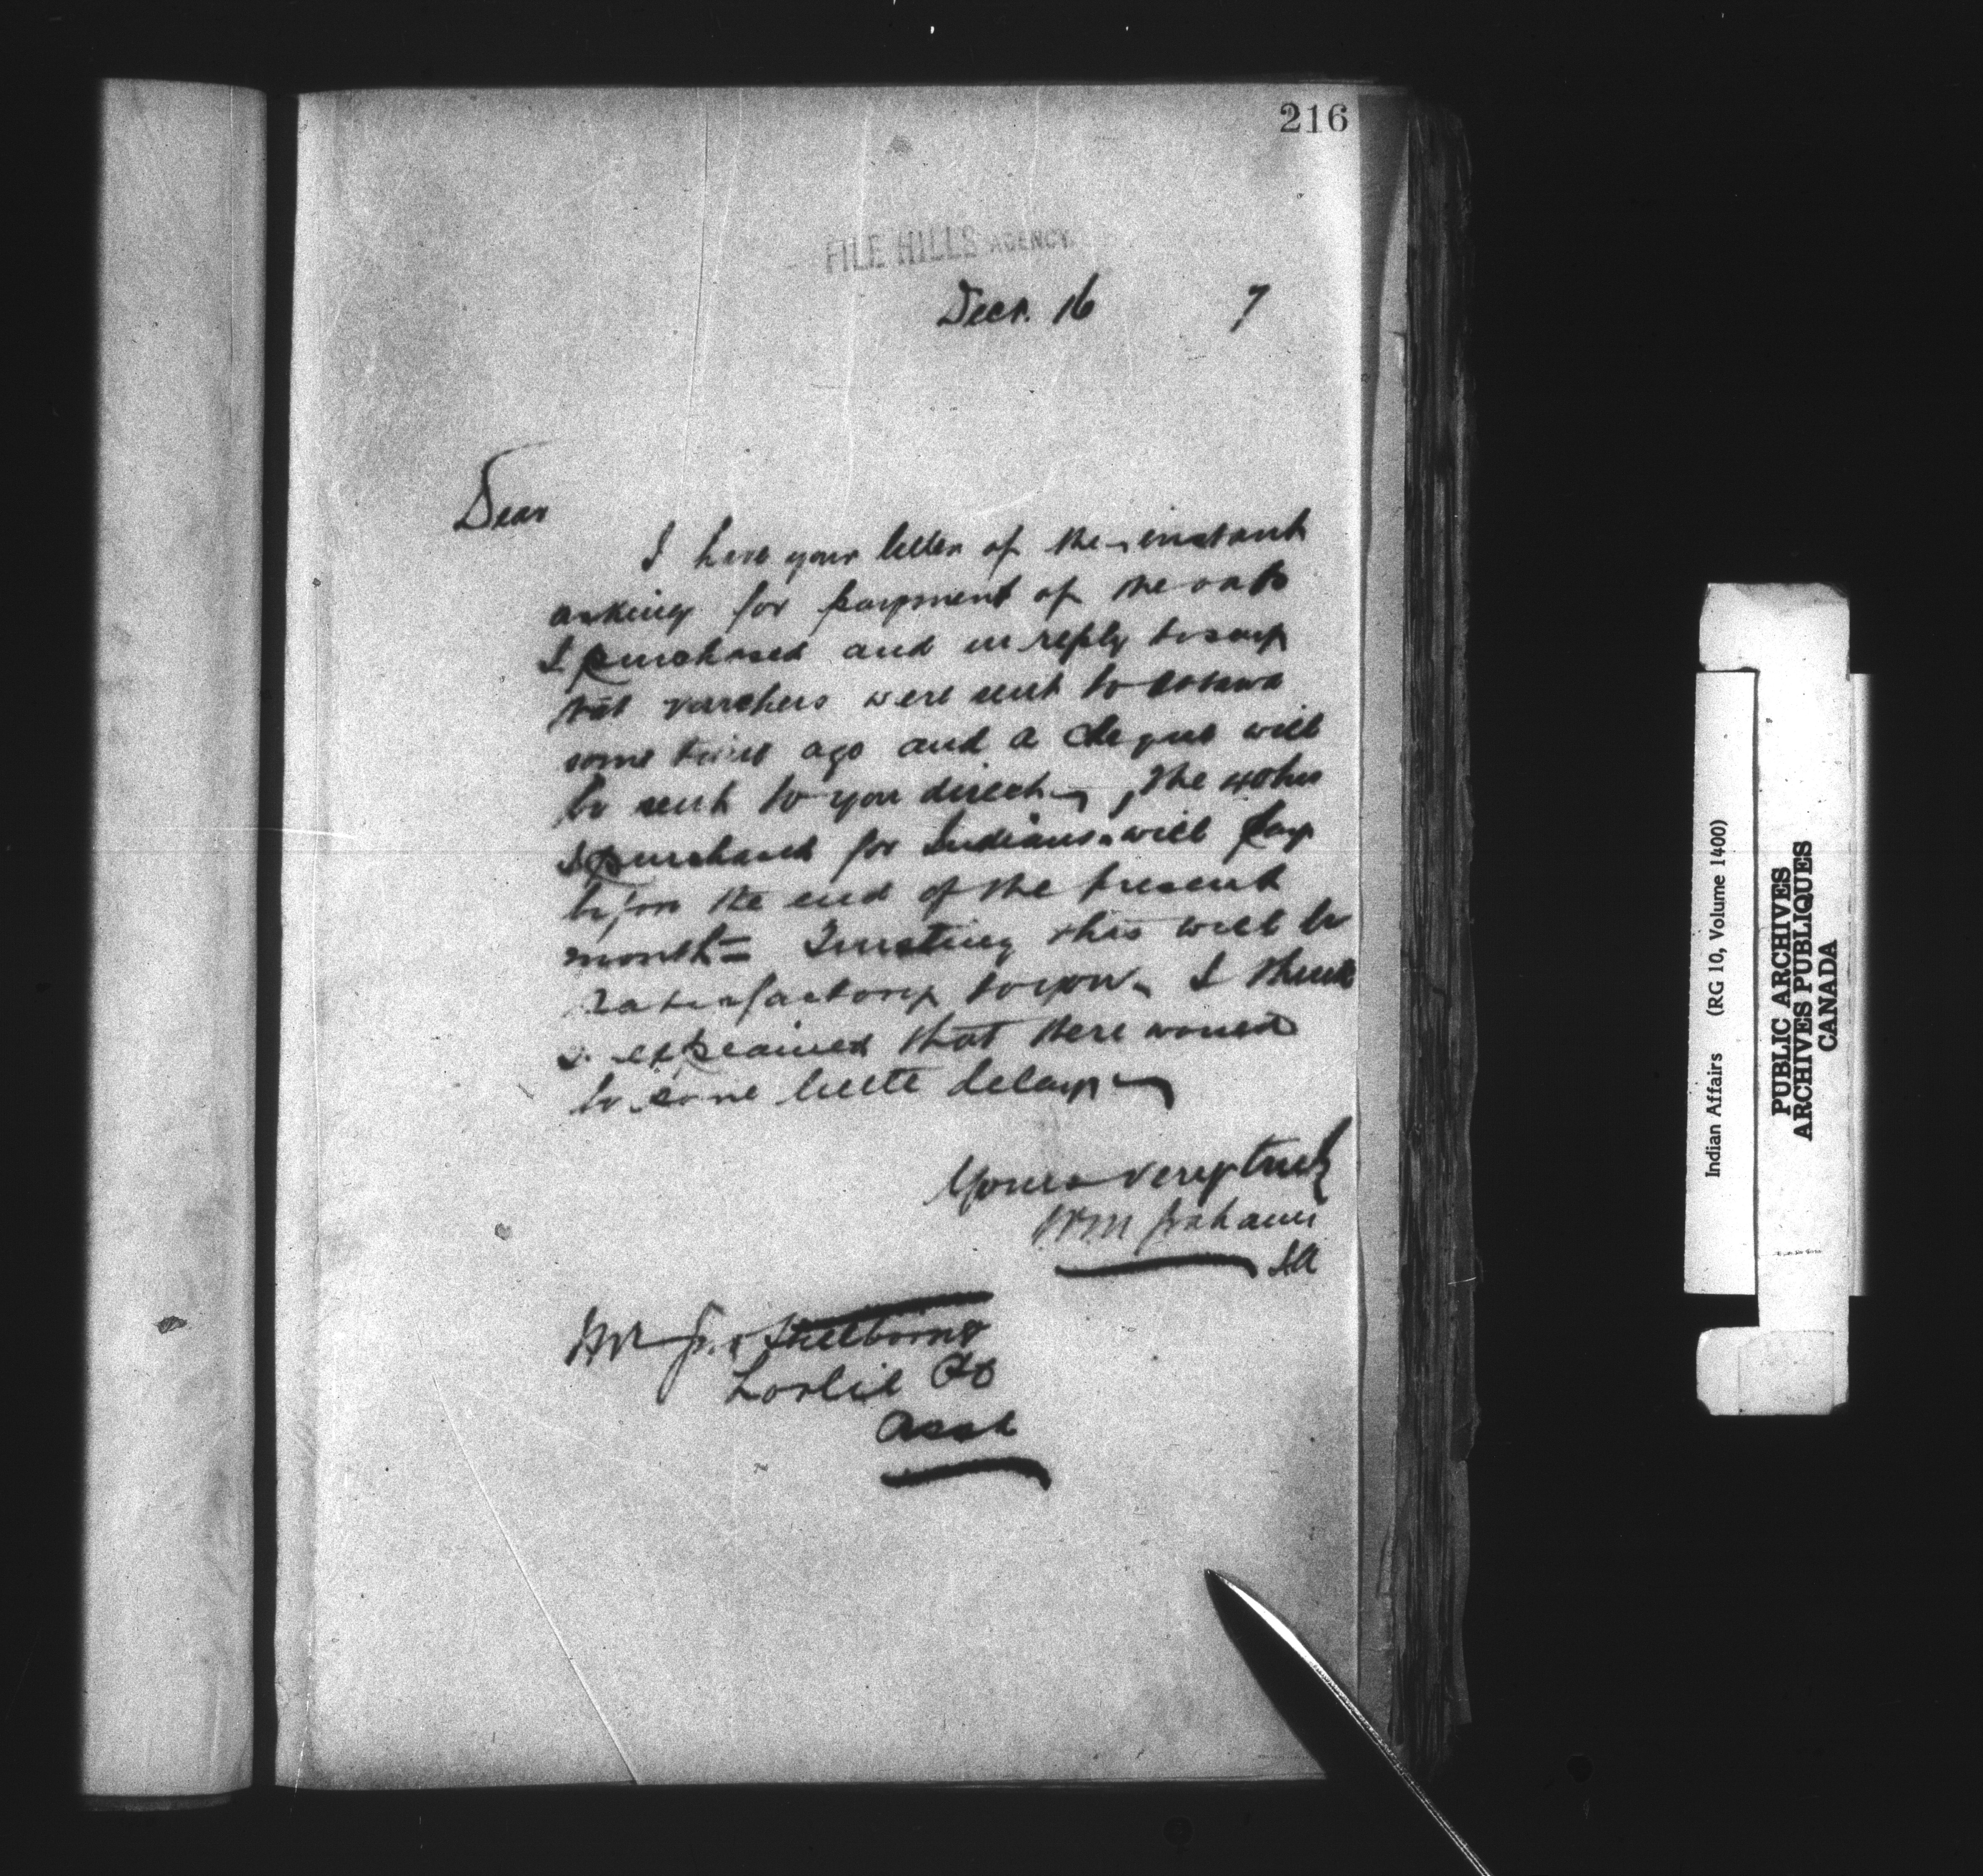 216
FILE HILLS AGENCY.
Decr. 16 7
Dear
I have your letter of the instant
asking for payment of the oats
I purchased and in reply to say
that vouchers were sent to Ottawa
some time ago and a cheque will
be sent to you direct, The
I purchased for Indians will pay
before the end of the present
month = Trusting this will be
satisfactory to you. I think
I explained that there would
be some little delay
Yours very truly
WM Graham
IA
Mr
Leslie PO
Assa
Indian Affairs (RG 10, Volume 1400)
PUBLIC ARCHIVES
ARCHIVES PUBLIQUES
CANADA